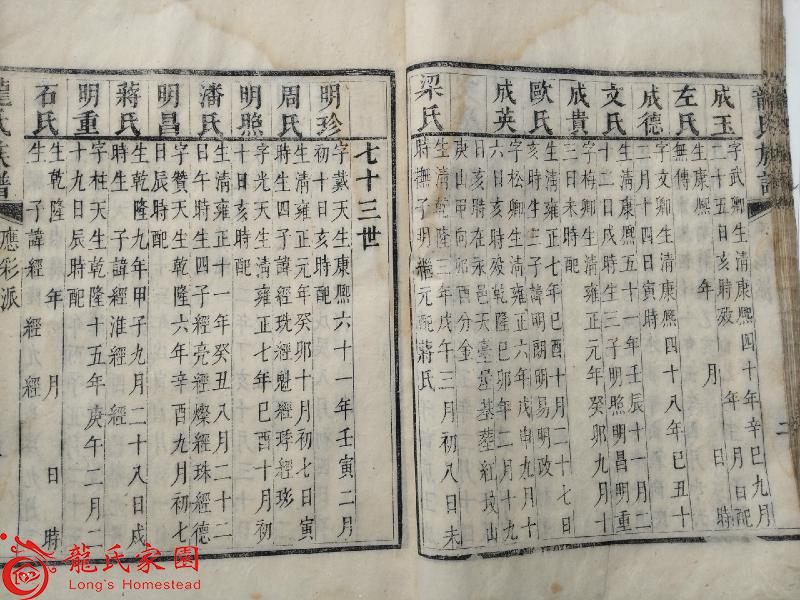 龍氏族譜
二
成玉
字武卿生清康熙四十年辛巳九月
二十五日亥時歿 年 月 日 時
左氏
生康熙 年 月 日
無傳
成德
字文卿生清康熙四十八年己丑十
二月十四日寅時
文氏
生清康熙五十一年壬辰十一月二
十二日戌時生三子明照明昌明重
成貴
字梅卿生清雍正元年癸卯九月十
三日未時配
歐氏
生清雍正七年己酉十月二十七日
亥時生三子諱明朗明易明政
成英
字松卿生清雍正六年戊申九月十
六日亥時歿乾隆己卯年二月十九
日亥時在永邑天臺墓塋紅坟山
庚山甲向
梁氏
生清乾隆三年戊午三月初八日未
時撫子明繼元配蔣氏
七十三世
明珍
字戴天生康熙六十一年壬寅二月
初十日亥時配
周氏
生清雍正元年癸卯十月初七日寅
時生四子諱經珗經魁經琈經珍
明照
字光天生清雍正七年己酉十月初
十日亥時配
潘氏
生清雍正十一年癸丑八月二十二
日午時生四子經亮經燦經珠經德
明昌
字贊天生乾隆六年辛酉九月初七
日辰時配
蔣氏
生乾隆九年甲子九月二十八日戌
時生 子諱經淮經 經
明重
字柱天生乾隆十五年庚午二月二
十九日辰時配
石氏
生乾隆 年 月 日 時
生 子諱經 經 經
龍氏族譜
應彩派
龍氏家園
Long's Homestead